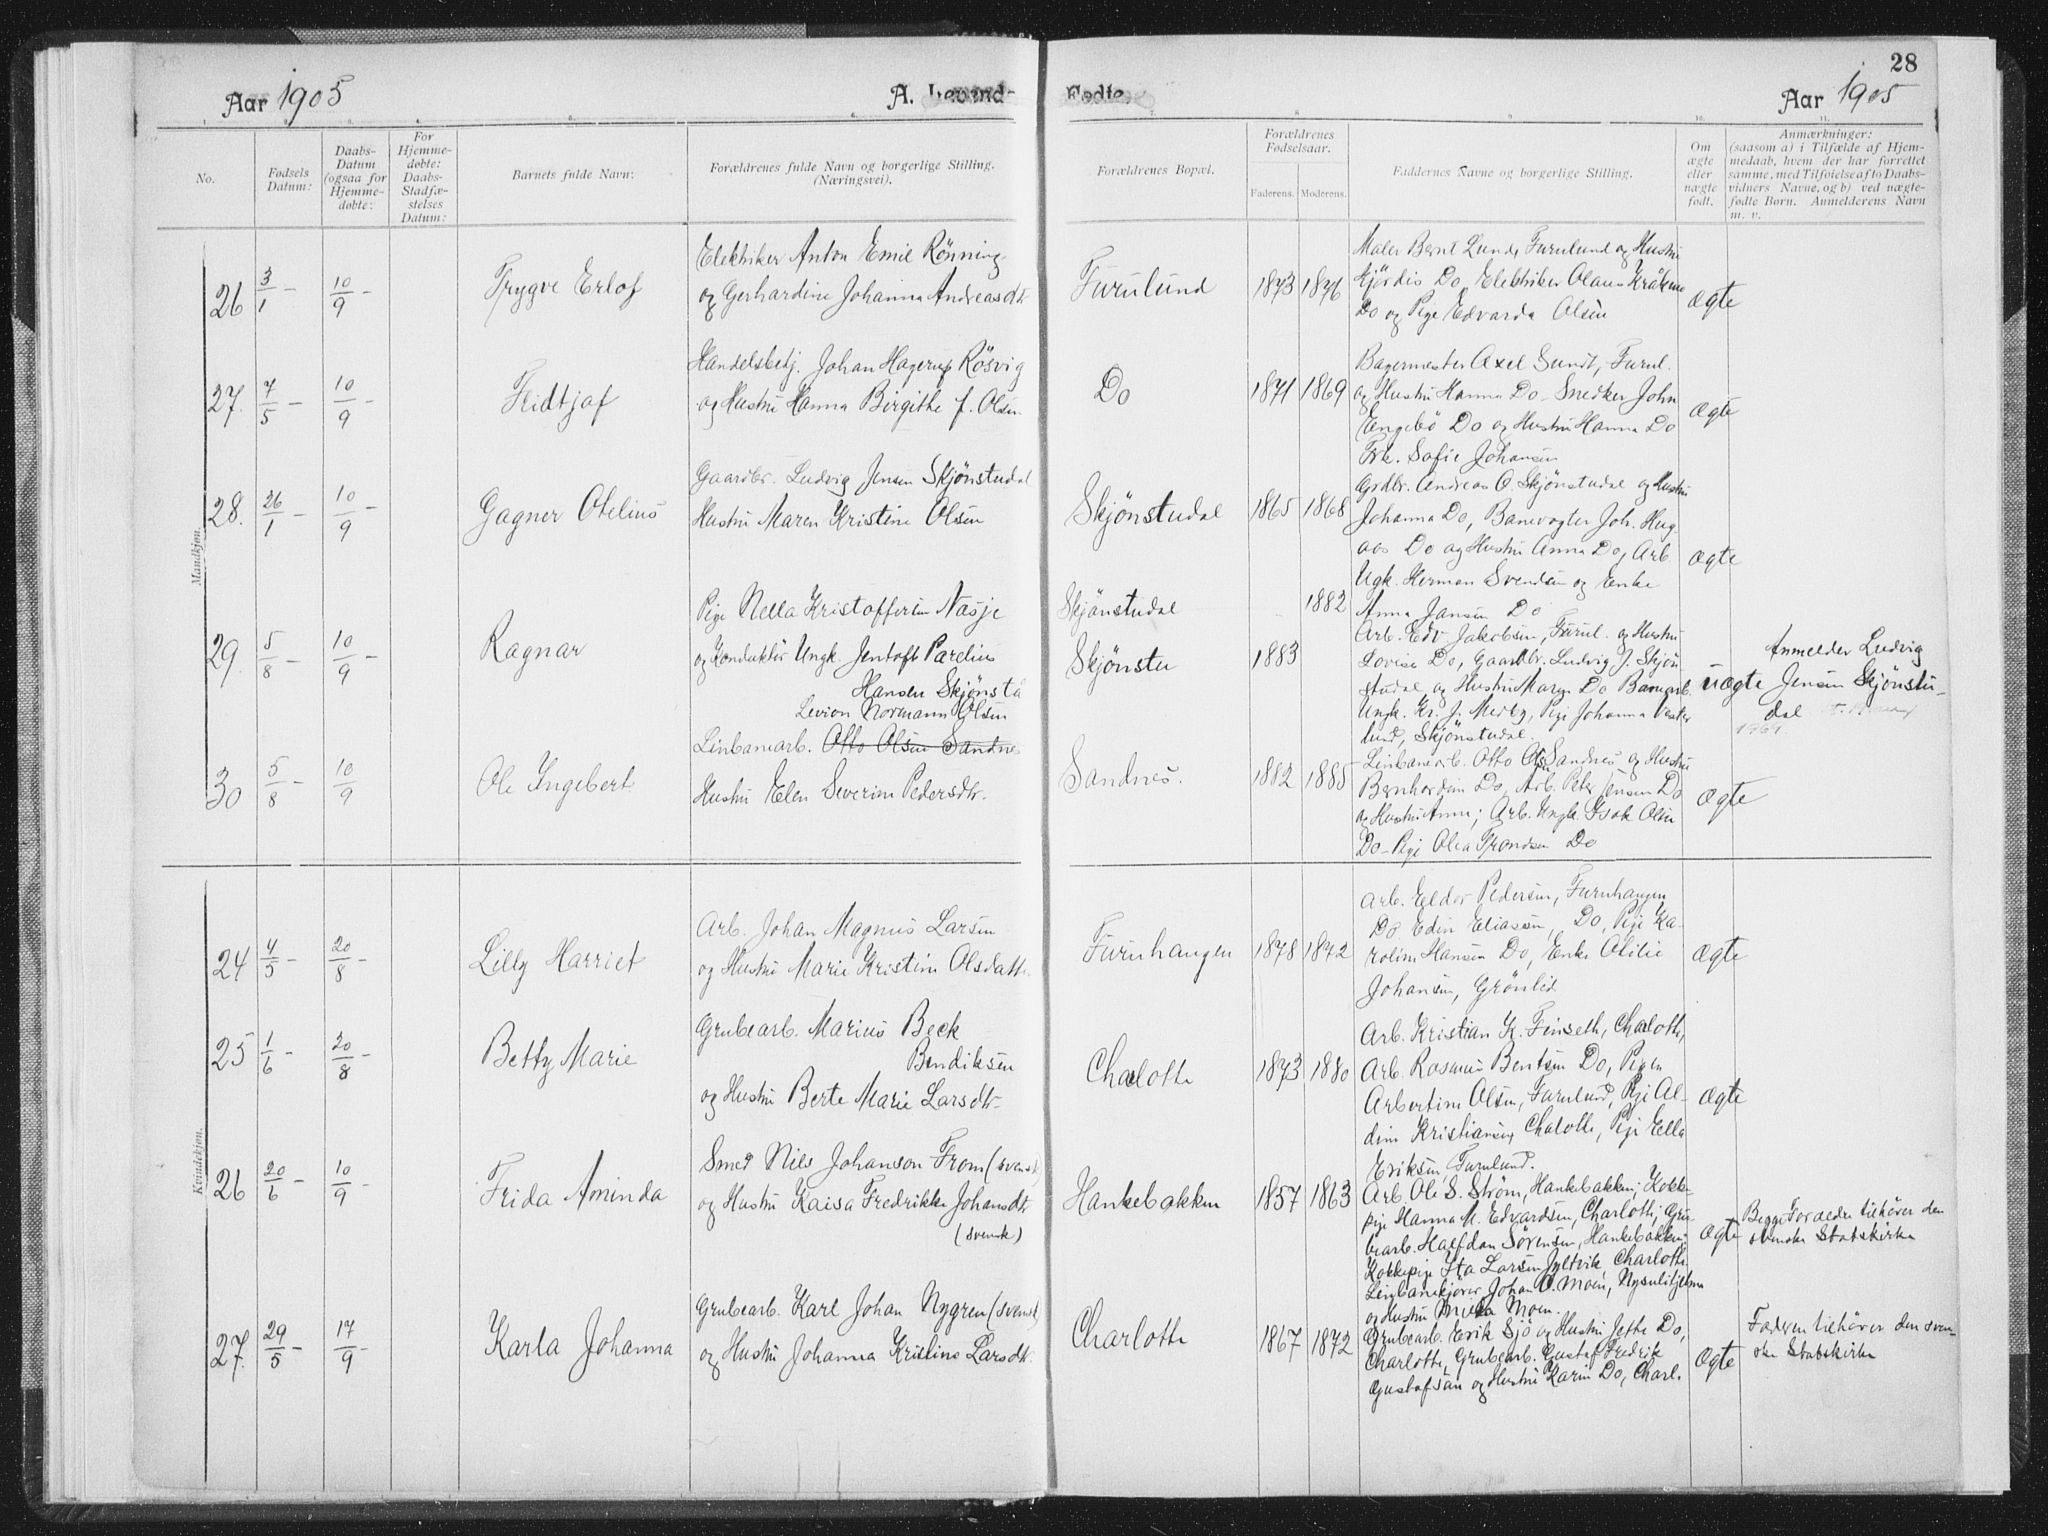 28
Aar 1905
A. Levend-
Fødte.
Aar 1905
1. 2. 3. 4. 5. 6. 7. 8. 9. 10. 11.
No.
Fødsels
Datum:
Daabs-
Datum
(ogsaa for
Hjemme-
døbte:
For
Hjemme-
døbte:
Daabs-
Stadfæ-
stelses
Datum:
Barnets fulde Navn:
Forældrenes fulde Navn og borgerlige Stilling.
(Næringsvei).
Forældrenes Bopæl.
Forældrenes
Fødselsaar.
Faderens. Moderens.
Faddernes Navne og borgerlige Stilling.
Om
ægte
eller
uægte
født.
Anmærkninger:
(saasom a) i Tilfælde af Hjem-
medaab, hvem der har forrettet
samme, med Tilføielse af to Daabs-
vidners Navne, og b) ved uægte-
fødte Børn. Anmelderens Navn
m. v.
Mandkjøn.
26 3/1 - 10/9 -
Trygve Erlof
Elektriker Anton Emil Rönning
og Gerhardine Johanna Andreasdtr
Furulund
1873 1876
Maler Bernt Lund, Furulund og Hustru
Hjördis Do, Elektriker Olaus
Do og Pige Edvarda Olsen
ægte
27. 7/5 - 10/9 -
Fridtjof
Handelsbetj. Johan Hagerup Rösvig
og Hustru Hanna Birgithe f. Olsen
Do
1871 1869
Bagermester Axel Sundt, Furul.
og Hustru Hanna Do - Snedker John
Engebö Do og Hustru Hanna Do
Frk. Sofie Johansen
ægte
28. 26/1 - 10/9 -
Gagner Otelius
Gaardbr. Ludvig Jensen Skjönstudal
Hustru Maren Kristine Olsen
Skjönstudal
1865 1868
Grdbr. Andreas O. Skjönstudal og Hustru
Johanna Do, Banevogter Joh. Hug-
aas Do og Hustru Anna Do, Arb.
Ugk. Herman Svendsen og Enke
Anna Jansen Do
ægte
29. 5/8 - 10/9 -
Ragnar
Pige Nella Kristoffersen Nasje
og Konduktör Ungk. Jentoft Parelius
Hansen Skjönstå
Skjönstudal
Skjönstu
1883 1882
Arb. Edv. Jakobsen, Furul. og Hustru
Lovise Do, Gaardbr. Ludvig J. Skjön-
studal og Hustru Maren Do Banearb.
Ungk. Kr. J. Medby, Pige Johanna Vester
lund, Skjönstudal.
uægte
Anmelder Ludvig
Jensen Skjönstu-
dal
30 5/8 - 10/9
Ole Ingebert
Levion Normann Olsen
Linbanearb. Otto Olsen Sandnes
Hustru Elen Severine Pedersdtr.
Sandnes.
1882 1885
Linbanearb. Otto Olsen Sandnes og Hustru
Bernhardine Do, Arb. Peter Jensen Do
og Hustru Anna; Arb. Ungk. Isak Olsen
Do - Pige Olea Trondsen Do
ægte
Kvindekjøn.
24 4/5 - 20/8 -
Lilly Harriet
Arb. Johan Magnus Larsen
og Hustru Marie Kristine Olsdatter
Furuhaugen
1878 1872
Arb. Eldor Pedersen, Furuhaugen
Do Edin Eliassen, Do, Pige Ka-
roline Hansen Do, Enke Otilie
Johansen, Grönlid
ægte
25 1/6 - 20/8 -
Betty Marie
Grubearb. Marius Beck
Bendiksen
og Hustru Berte Marie Larsdtr.
Charlotte
1873 1880
Arb. Kristian K. Finseth, Charlotte,
Arb. Rasmus Bentsen Do, Pigen
Arbertine Olsen, Furulund, Pige Al-
dine Kristiansen Chalotte, Pige Ella
Eriksen Furulund.
ægte
26 20/6 - 10/9 -
Frida Aminda
Smed Nils Johanson From (svensk)
og Hustru Kaisa Fredrikke Johansdtr
(svensk)
Hankebakken
1857 1863
Arb. Ole S. Ström, Hankebakken; Kokke-
pige Hanna M. Edvardsen, Charlotte; Gru-
bearb. Halfdan Sörensen, Hankebakken;
Kokkepige Ida Larsen Jyltvik, Charlotte
Linbanekjörer Johan O. Moen, Nysulitjelma
og Hustru Moen.
ægte
Begge Forældre tilhörer den
svenske Statskirke
27. 29/5 - 17/9 -
Karla Johanna
Grubearb. Karl Johan Nygren (svensk)
og Hustru Johanna Kristine Larsdtr.
Charlotte
1867 1872
Grubearb. Erik Sjö og Hustru Jette Do,
Charlotte, Grubearb. Gustaf Fredrik
Gustafsan og Hustru Karin Do, Charl.
ægte
Faderen tilhörer den sven-
ske Statskirke